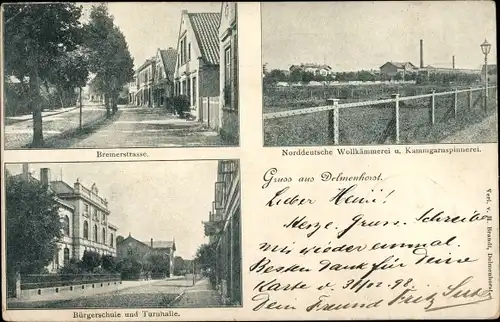 Bremerstrasse.
Norddeutsche Wollkämmerei u. Kammgarnspinnerei.
Gruss aus Delmenhorst.
Lieber Heini!
Herze. Gruss. Schreibe
mir wieder einmal.
Besten Dank für Deine
Karte v. 31/12. 98.
Dein Freund Fritz
Bürgerschule und Turnhalle.
Verl. v. Brandt, Delmenhorst.